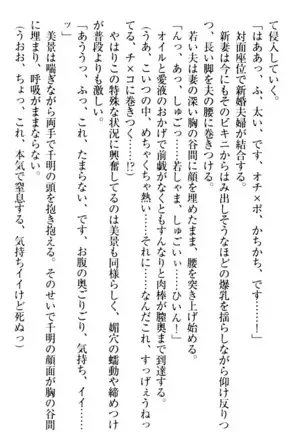 て侵入していく。
「はああっ、ふ、太い、です、オチ×ポ、かちかち、です……！」
対面座位で新婚夫婦が結合する。
新妻は今にもそのビキニからはみ出しそうなほどの爆乳を揺らしながら仰け反りつ
つ、長い脚を夫の腰に巻きつける。
「んっ、あっ、しゅごい……若しゃま、しゅごいぃ……ひいん！」
若い夫は妻の深い胸の谷間に顔を埋めたまま、腰を突き上げ始める。
オイルと愛液のおかげで前戯がなくともすんなりと肉棒が膣奥まで到達する。
（うあ、こいつの中、めちゃくちゃ熱い……それに……なんだこれ、すっげぇうねっ
て、チ×コに巻きつく……!?）
やはりこの特殊な状況に興奮してるのは美景も同様らしく、媚穴の蠕動や締めつけ
が普段よりも激しい。
「あううっ、ふっ、これ、たまらない、です、お腹の奥ごりごり、気持ち、イイ……
ッ」
美景は喘ぎながら両手で千明の頭を抱き抱える。そのせいで千明の顔面が胸の谷間
に埋まり、呼吸がままならない。
（うおお、ちょっ、これ、本気で窒息する、気持ちイイけど死ぬっ）